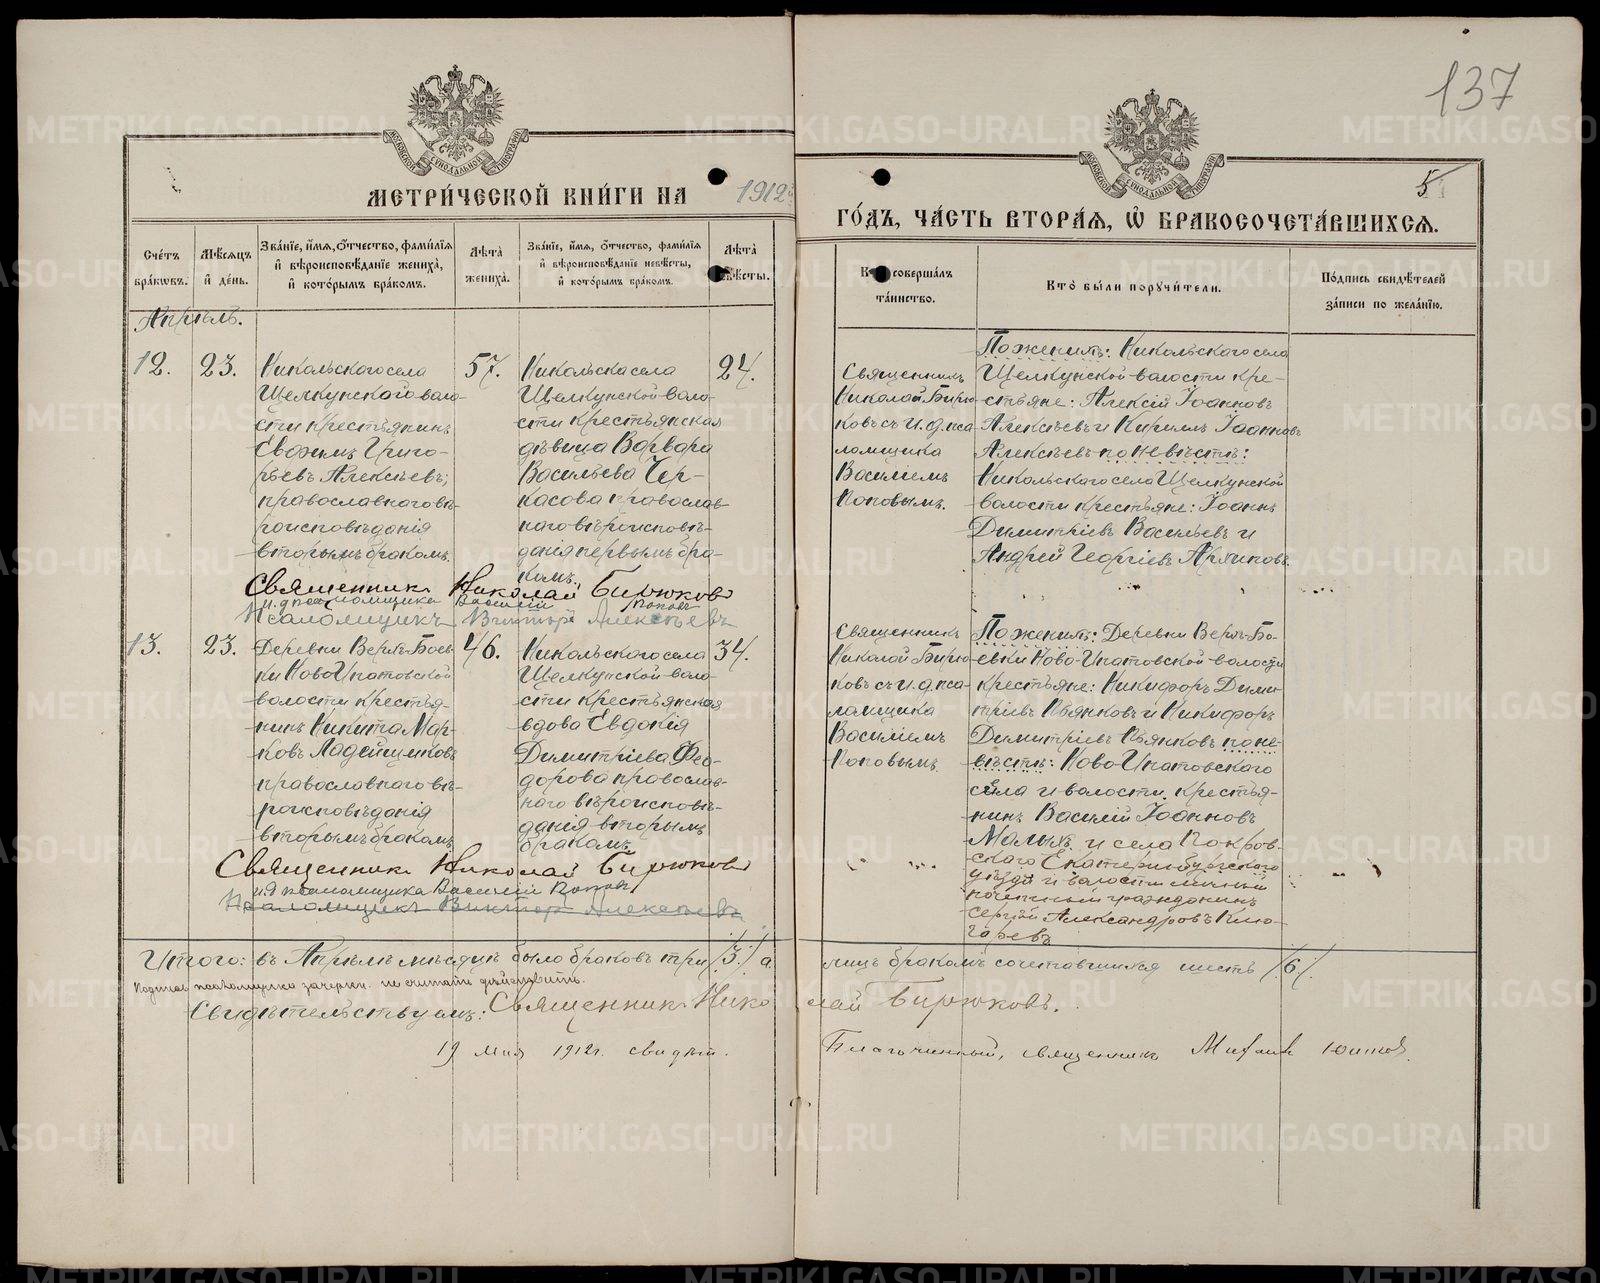 137
МЕТРИ́ЧЕСКОЙ КНИ́ГИ НА 1912
5
ГО́ДЪ, ЧА́СТЬ ВТОРА́Я, Ѡ БРАКОСОЧЕТА́ВШИХСЯ.
Сче́тъ бра́кѡвъ.
Мѣ́сяцъ и́ де́нь.
Зва́нїе, и́мя, ѻ́тчество, фами́лїя и́ вѣроисповѣ́данїе жениха̀, и́ кото́рымъ бра́комъ.
Лѣта̀ жениха̀.
Зва́нїе, и́мя, ѻ́тчество, фами́лїя и́ вѣроисповѣ́данїе невѣ́сты, и́ кото́рымъ бра́комъ.
Лѣта̀ невѣ́сты.
совершáлъ та́инство.
Кто̀ бы́ли поручи́тели.
По́дпись свидѣ́телей за́писи по жела́нїю.
Апрѣль.
12.
23.
Никольскаго села
Щелкунскаго воло-
сти крестьянинъ
Евѳимъ Григо-
рьевъ Алексѣевъ;
православнаго вѣ-
роисповѣданія
вторымъ бракомъ.
57.
Никольска села
Щелкунской воло-
сти крестьянская
дѣвица Варвара
Васильева Чер-
касова православ-
наго вѣроисповѣ-
данія первымъ бра-
комъ.
24.
Священникъ
Николай Бирю-
ковъ съ и. д. пса-
ломщика
Василіемъ
Поповымъ.
По женихѣ: Никольскаго села
Щелкунской волости кре-
стьяне: Алексій Іоанновъ
Алексѣевъ и Киримъ Іоанновъ
Алексѣевъ по невѣстѣ:
Никольскаго села Щелкунской
волости крестьяне: Іоаннъ
Димитріевъ Васильевъ и
Андрей Георгіевъ Аряповъ.
Священникъ Николай Бирюковъ
и. д. псаломщика Василій Поповъ
Псаломщикъ Викторъ Алексѣевъ
13.
23.
Деревни Верхъ-Боев-
ки Ново-Ипатовской
волости крестья-
нинъ Никита Мар-
ковъ Ладейщиковъ
православнаго вѣ-
роисповѣданія
вторымъ бракомъ.
46.
Никольскаго села
Щелкунской воло-
сти крестьянская
вдова Евдокія
Димитріева Ѳео-
дорова православ-
наго вѣроисповѣ-
данія вторымъ
бракомъ.
34.
Священникъ
Николай Бирю-
ковъ съ и. д. пса-
ломщика
Василіемъ
Поповымъ.
По женихѣ: Деревни Верхъ-Бо-
евки Ново-Ипатовской волости
крестьяне: Никифоръ Дими-
тріевъ Пьянковъ и Никифоръ
Димитріевъ Пьянковъ по не-
вѣстѣ: Ново-Ипатовскаго
села и волости крестья-
нинъ Василій Іоанновъ
Малыхъ и села Покров-
скаго Екатеринбургскаго
уѣзда и волости личный
почетный гражданинъ
Сергій Александровъ Клю-
чаревъ
Священникъ Николай Бирюковъ
и. д. псаломщика Василій Поповъ
Псаломщикъ Викторъ Алексѣевъ
Итого: въ Апрѣлѣ мѣсяцѣ было браковъ три /3./ а лицъ бракомъ сочетавшихся шесть /6/.
Подпись псаломщика зачеркн. не считать дѣйствит.
Свидѣтельствуемъ: Священникъ Николай Бирюковъ.
19 мая 1912 г. свидѣт. Благочинный, священникъ Михаилъ